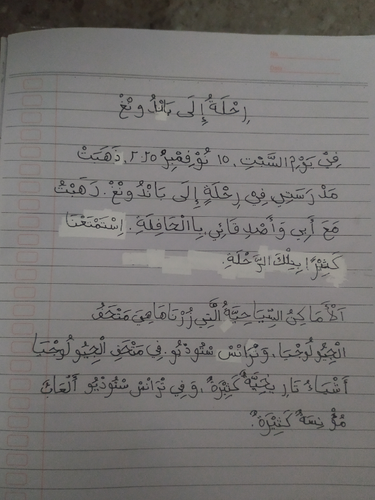 رِحْلَةُ إِلَى بَانْدُونْغْ
فِيْ يَوْمِ السَّبْتِ، ١٥ نُوْفِمْبِرْ ٢٠٢٥، ذَهَبَتْ
مَدْرَسَتِيْ فِيْ رِحْلَةٍ إِلَى بَانْدُونْغْ. ذَهَبْتُ
مَعَ أَبِي وَأَصْدِقَائِي بِالْحَافِلَةِ. اِسْتَمْتَعْنَا
كَثِيْرًا بِتِلْكَ الرِّحْلَةِ.
اَلْأَمَاكِنُ السِّيَاحِيَّةُ الَّتِي زُرْنَاهَا هِيَ مَتْحَفُ
الْجِيُولُوجْيَا، وَتْرَانْسْ سْتُودْيُو. فِيْ مَتْحَفِ الْجِيُولُوجْيَا
أَشْيَاءُ تَارِيْخِيَّةٌ كَثِيْرَةٌ، وَفِيْ تْرَانْسْ سْتُودْيُو أَلْعَابٌ
مُؤْنِسَةٌ كَثِيْرَةٌ.